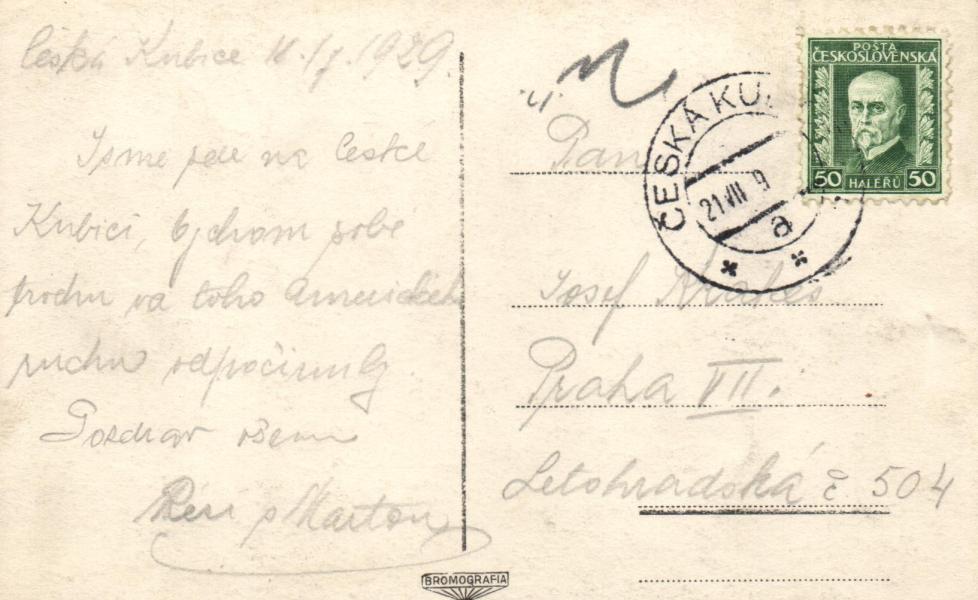 Česká Kubice 11./7. 1929.
Jsme zde na České
Kubici, bychom sobě
trochu od toho Amerického
ruchu odpočinuly.
Pozdrav všem
Réri s Martou
POŠTA
ČESKOSLOVENSKÁ
50 HALÉŘŮ 50
ČESKÁ KU
21 VII 9
a
Pan
Josef
Praha VII.
Letohradská č 504
BROMOGRAFIA